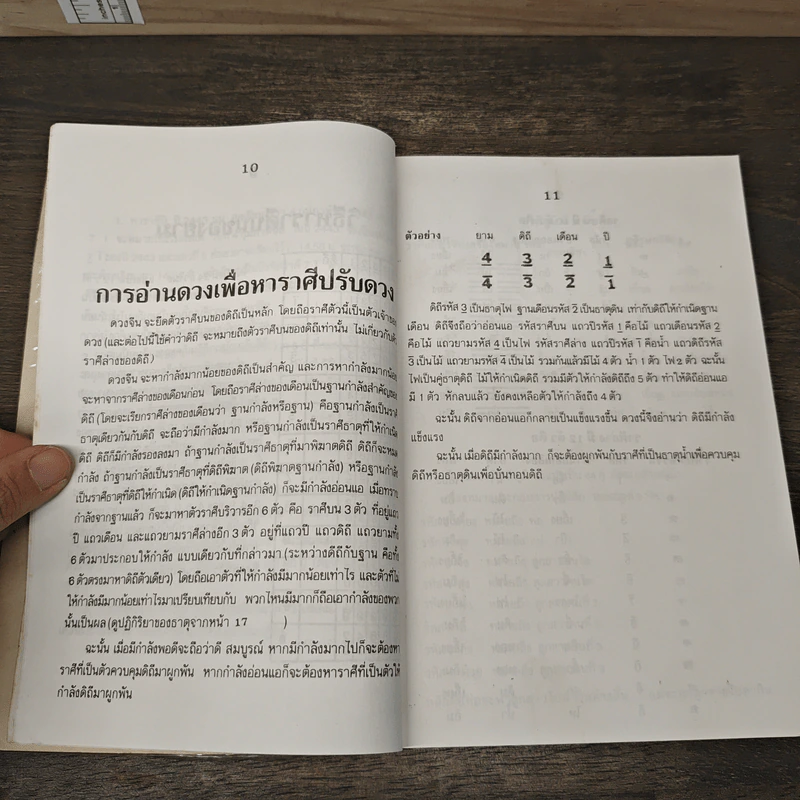 inches
10
การอ่านดวงเพื่อหาราศีปรับดวง
ดวงจีน จะยึดตัวราศีบนของดิถีเป็นหลัก โดยถือราศีตัวนี้เป็นตัวเจ้าของ
ดวง (และต่อไปนี้ใช้คำว่าดิถี จะหมายถึงตัวราศีบนของดิถีเท่านั้น ไม่เกี่ยวกับตัว
ราศีล่างของดิถี)
ดวงจีน จะหากำลังมากน้อยของดิถีเป็นสำคัญ และการหากำลังมากน้อย
จะหาจากราศีล่างของเดือนก่อน โดยถือราศีล่างของเดือนเป็นฐานกำลังสำคัญของ
ดิถี (โดยจะเรียกราศีล่างของเดือนว่า ฐานกำลังหรือฐาน) คือฐานกำลังเป็นราศี
ธาตุเดียวกันกับดิถี จะถือว่ามีกำลังมาก หรือฐานกำลังเป็นราศีธาตุที่ให้กำเนิด
ดิถี ดิถีก็มีกำลังรองลงมา ถ้าฐานกำลังเป็นราศีธาตุที่มาพิฆาตดิถี ดิถีก็จะหมด
กำลัง ถ้าฐานกำลังเป็นราศีธาตุที่ดิถีพิฆาต (ดิถีพิฆาตฐานกำลัง) หรือฐานกำลัง
เป็นราศีธาตุที่ดิถีให้กำเนิด (ดิถีให้กำเนิดฐานกำลัง) ก็จะมีกำลังอ่อนแอ เมื่อทราบ
กำลังจากฐานแล้ว ก็จะมาหาตัวราศีบริวารอีก 6 ตัว คือ ราศีบน 3 ตัว ที่อยู่แถว
ปี แถวเดือน และแถวยามราศีล่างอีก 3 ตัว อยู่ที่แถวปี แถวดิถี แถวยามทั้ง
6 ตัวมาประกอบให้กำลัง แบบเดียวกับที่กล่าวมา (ระหว่างดิถีกับฐาน คือทั้ง
6 ตัวตรงมาหาดิถีตัวเดียว) โดยถือเอาตัวที่ให้กำลังมีมากน้อยเท่าไร และตัวที่ไม่
ให้กำลังมีมากน้อยเท่าไรมาเปรียบเทียบกับ พวกไหนมีมากก็ถือเอากำลังของพวก
นั้นเป็นผล (ดูปฏิกิริยาของธาตุจากหน้า 17 )
ฉะนั้น เมื่อมีกำลังพอดีจะถือว่าดี สมบูรณ์ หากมีกำลังมากไปก็จะต้องหา
ราศีที่เป็นตัวควบคุมดิถีมาผูกพัน หากกำลังอ่อนแอก็จะต้องหาราศีที่เป็นตัวให้
กำลังดิถีมาผูกพัน
11
ตัวอย่าง ยาม ดิถี เดือน ปี
4 3 2 1
4 3 2 1
ดิถีรหัส 3 เป็นธาตุไฟ ฐานเดือนรหัส 2 เป็นธาตุดิน เท่ากับดิถีให้กำเนิดฐาน
เดือน ดิถีจึงถือว่าอ่อนแอ รหัสราศีบน แถวปีรหัส 1 คือไม้ แถวเดือนรหัส 2
คือไม้ แถวยามรหัส 4 เป็นไฟ รหัสราศีล่าง แถวปีรหัส 1 คือน้ำ แถวดิถีรหัส
3 เป็นไม้ แถวยามรหัส 4 เป็นไม้ รวมกันแล้วมีไม้ 4 ตัว น้ำ 1 ตัว ไฟ 2 ตัว ฉะนั้น
ไฟเป็นคู่ธาตุดิถี ไม้ให้กำเนิดดิถี รวมมีตัวให้กำลังดิถีถึง 5 ตัว ทำให้ดิถีอ่อนแอ
มี 1 ตัว หักลบแล้ว ยังคงเหลือตัวให้กำลังถึง 4 ตัว
ฉะนั้น ดิถีจากอ่อนแอก็กลายเป็นแข็งแรงขึ้น ดวงนี้จึงอ่านว่า ดิถีมีกำลัง
แข็งแรง
ฉะนั้น เมื่อดิถีมีกำลังมาก ก็จะต้องผูกพันกับราศีที่เป็นธาตุน้ำเพื่อควบคุม
ดิถีหรือธาตุดินเพื่อบั่นทอนดิถี